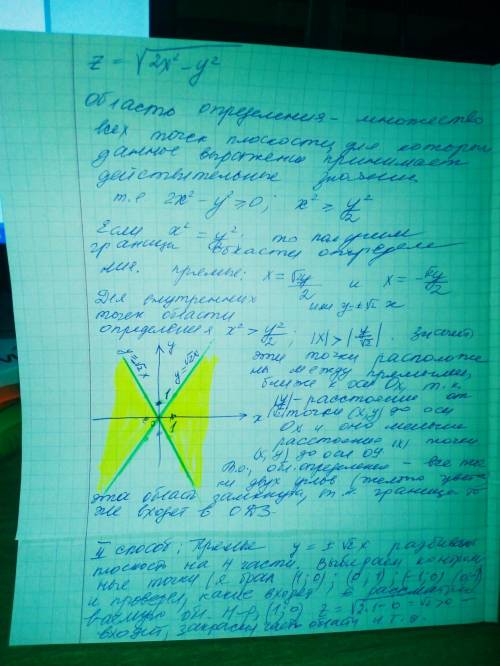 z = √2x² - y²
Область определения - множество
всех точек плоскости, для которых
данное выражение принимает
действительные значения
т.е 2x² - y² ≥ 0; x² ≥ y²/2
Если x² = y²/2 то получим
границы области определе
ния. прямые: x = √2y/2 и x = -√2y/2
или y = ±√2 x
Для внутренних
точек области
определения x² > y²/2; |x| > |y/√2|. Значит,
эти точки расположе
ны между прямыми,
ближе к оси Ox, т.к.
|y| - расстояние от
точки (x,y) до оси
Ox и оно меньше
расстояния |x| точки
(x,y) до оси oy.
y = -√2 x
y = √2x
y
x
1
Т.о., обл. определения - все
двух углов (желтого цвета
эта область замкнута, т.к. граница
же входит в ОДЗ.
II способ: Прямые y = ±√2 x разбивают
плоскость на 4 части. Выбираем
ные точки (я брал (1;0); (0;1); (-1;0) (0;-1)
и проверял, какие входят в
(1;0) z = √2·1-0 = √2 > 0 -
входит, закрасим часть области и т.д.